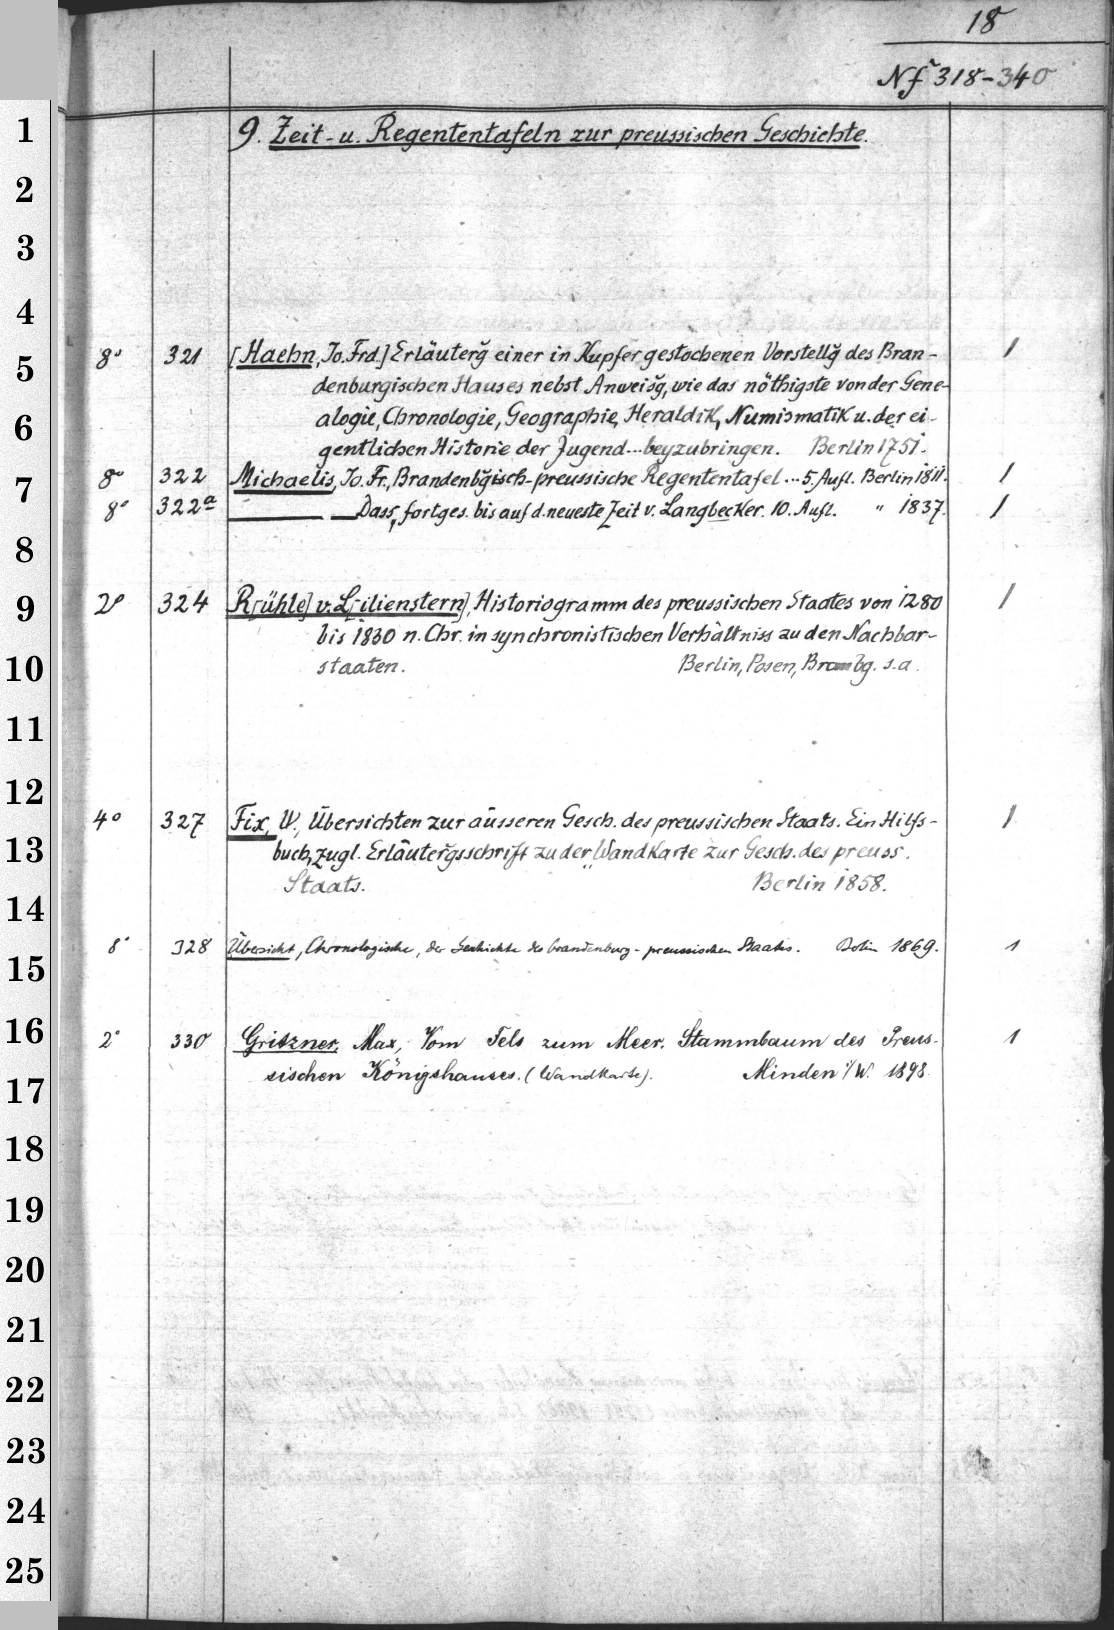 18
Nf 318-340
1
9. Zeit- u. Regententafeln zur preussischen Geschichte.
2
3
4
8° 321 [Haehn, Jo. Frd.] Erläuterg̃ einer in Kupfer gestochenen Vorstellg̃ des Bran- 1
5
denburgischen Hauses nebst Anweisg̃, wie das nöthigste von der Gene-
alogie, Chronologie, Geographie, Heraldik, Numismatik u. der ei-
6
gentlichen Historie der Jugend... beyzubringen. Berlin 1751.
8° 322 Michaelis, Jo. Fr., Brandenbg̃isch-preussische Regententafel ... 5. Aufl. Berlin 1811. 1
7
8° 322a ——— — Dass., fortges. bis auf d. neueste Zeit v. Langbecker. 10. Aufl. " 1837. 1
8
2° 324 R[ühle] v. L[ilienstern], Historiogramm des preussischen Staates von 1280 1
9
bis 1830 n. Chr. in synchronistischen Verhältniss zu den Nachbar-
staaten. Berlin, Posen, Brombg. s.a.
10
11
12
4° 327 Fix, W., Übersichten zur äusseren Gesch. des preussischen Staats. Ein Hilfs- 1
buch, zugl. Erläuterg̃sschrift zu der "Wandkarte zur Gesch. des preuss.
13
Staats. Berlin 1858.
14
8° 328 Übersicht, Chronologische, der Geschichte des brandenburg-preussischen Staates. Berlin 1869. 1
15
16
2° 330 Gritzner, Max, Vom Fels zum Meer. Stammbaum des Preus- 1
sischen Königshauses. (Wandkarte). Minden i/W. 1898.
17
18
19
20
21
22
23
24
25